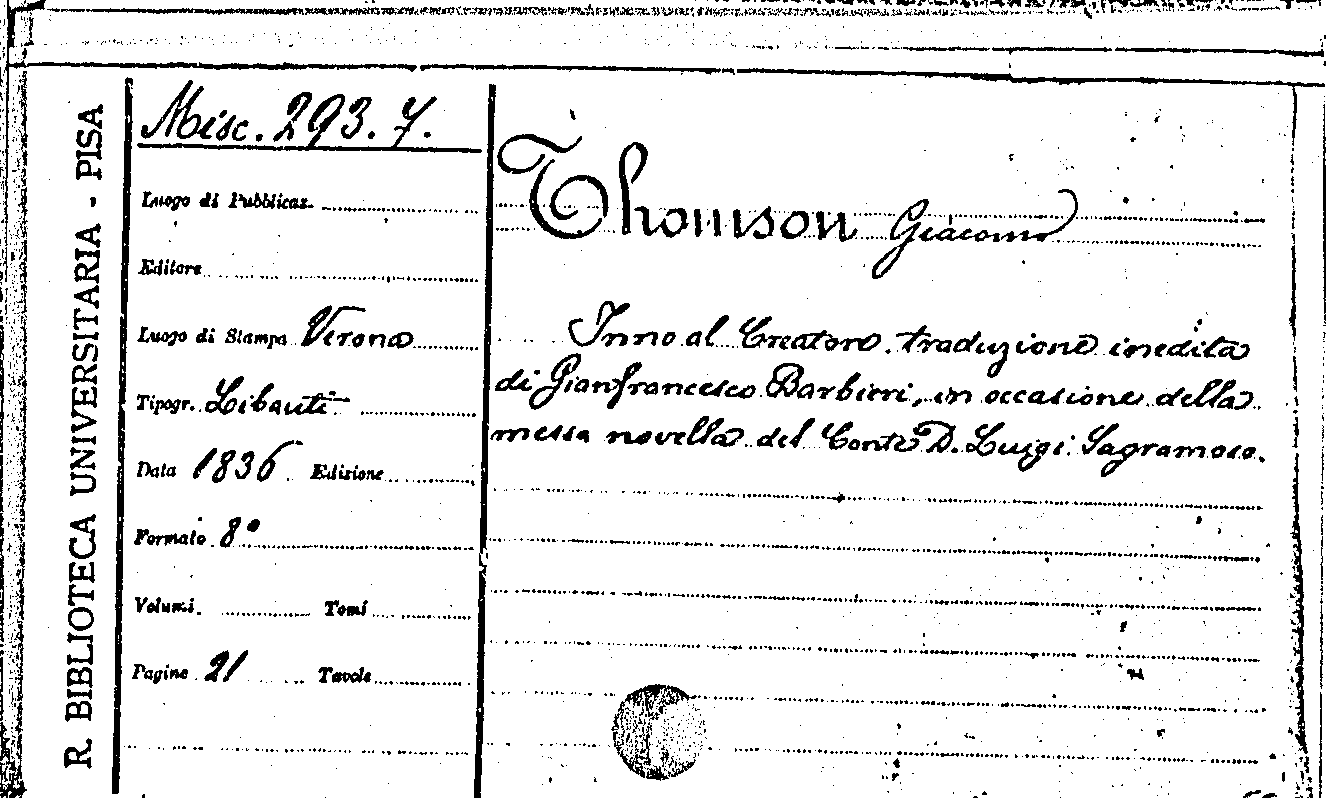 R. BIBLIOTECA UNIVERSITARIA - PISA
Misc. 293. 7.
Luogo di Pubblicaz.
Editore
Luogo di Stampa Verona
Tipogr. Libanti
Data 1836 Edizione
Formato 8°
Volumi. Tomi
Pagine 21 Tavole
Thomson Giacomo
Inno al Creatore. traduzione inedita
di Gianfrancesco Barbieri, in occasione della
messa novella del Conte D. Luigi Sagramoso.